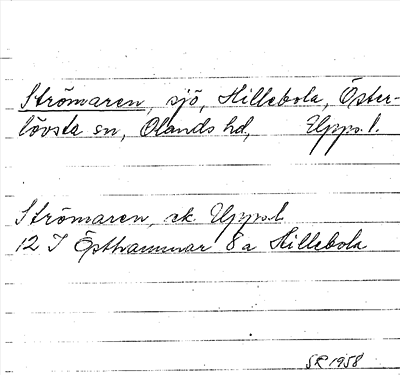 Strömaren, sjö, Hillebola, Öster-
lövsta sn, Olands hd, Upps. l.
Strömaren, ek. Upps. l.
12 I Östhammar 8 a Hillebola
SR 1958